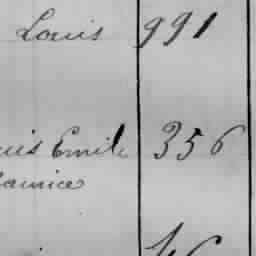 Louis 991
uis Emile 356
aurice